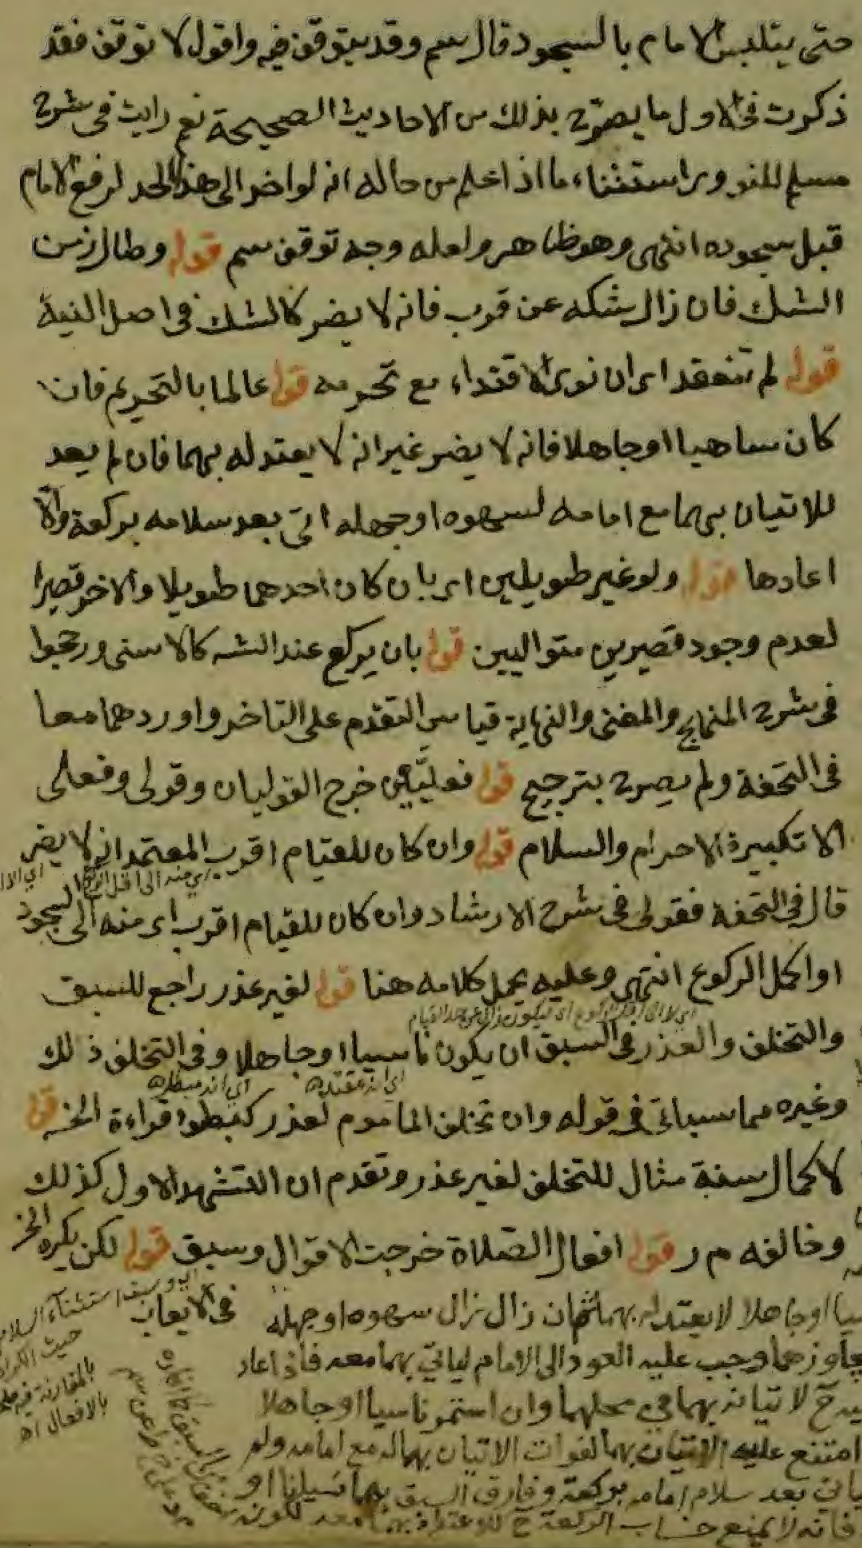 حتى يتلبس الامام بالسجود قال سم وقد يتوقف فيه واقول لا توقف فقد
ذكرت في الاول ما يصرح بذلك من الاحاديث الصحيحة نعم رايت في شرح
مسلم للنووى استثناء ما اذا علم من حاله انه لو اخر الى هذا الحد لرفع الامام
قبل سجوده انتهى وهو ظاهر ولعله وجه توقف سم قوله وطال زمن
الشك فان زال شكه عن قرب فانه لا يضر كالشك في اصل النية
قوله لم تنعقد اى ان نوى الاقتداء مع تحرمه قوله عالما بالتحريم فان
كان ساهيا او جاهلا فانه لا يضر غير انه لا يعتد له بهما فان لم يعد
للاتيان بهما مع امامه لسهوه او جهله اتى بعد سلامه بركعة والا
اعادها قوله ولو غير طويلين اى بان كان احدهما طويلا والاخر قصيرا
لعدم وجود قصيرين متواليين قوله بان يركع عند الشه كالاسنى ورجحوا
في شرح المنهاج والمغنى والنهاية قياس التقدم على التاخر واوردهما معا
في التحفة ولم يصرح بترجيح قوله فعليين خرج القوليان وقولى وفعلى
الا تكبيرة الاحرام والسلام قوله وان كان للقيام اقرب المعتمد انه لا يضر
قال في التحفة فقولى في شرح الارشاد وان كان للقيام اقرب اى منه الى السجود
او اكمل الركوع انتهى وعليه يحمل كلامه هنا قوله لغير عذر راجع للسبق
والتخلف والعذر في السبق ان يكون ناسيا او جاهلا وفي التخلف ذلك
وغيره مما سياتي في قوله وان تخلف الماموم لعذر كبطؤ قراءة الخ قوله
لاكمال سنة مثال للتخلف لغير عذر وتقدم ان التشهد الاول كذلك
وخالفه م ر قوله افعال الصلاة خرجت الاقوال وسبق قوله لكن يكره الخ
او جاهلا لا يعتد له بهما ثم ان زال سهوه او جهله
وجب عليه العود الى الامام لياتي بهما معه فاذا عاد
لاتيانه بهما في محلهما وان استمر ناسيا او جاهلا
امتنع عليه الاتيان بهما لفوات الاتيان بهما له مع امامه ولم
بعد سلام امامه بركعة وفارق السبق بهما
فانه لا يمنع حساب الركعة
في الايعاب
استثناء السلام
حيث
بالمقارنة فيه
بالافعال اه